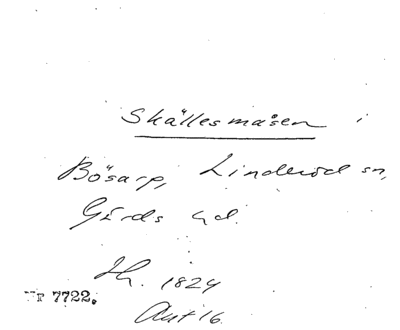 Skällesmåsen i
Bösarp, Linderöd sn,
Gärds hd.
Th. 1824
Akt 16.
7722.